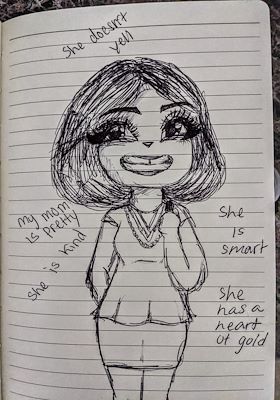 She doesn't
yell
my mom
is pretty
she is kind
She
is
smart
She
has a
heart
of gold